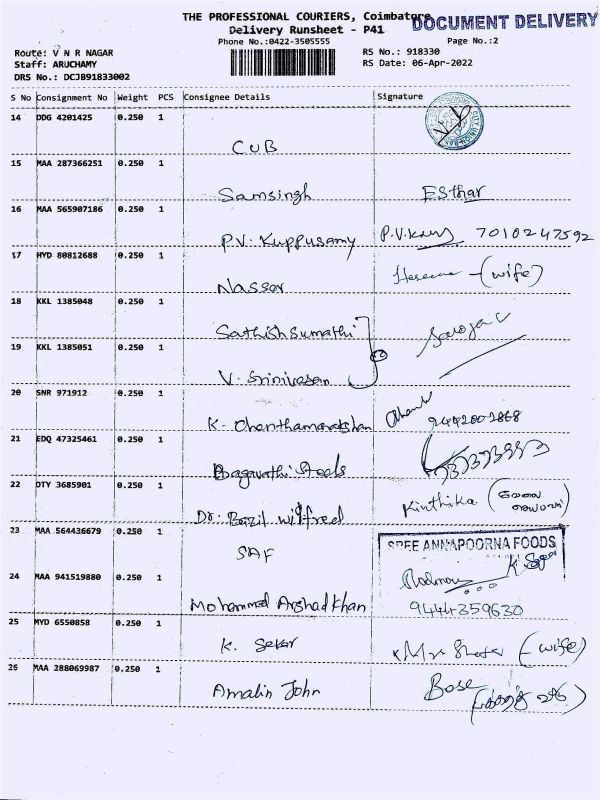 THE PROFESSIONAL COURIERS, Coimbatore
DOCUMENT DELIVERY
Delivery Runsheet - P41
Phone No.:0422-3505555
Page No.:2
Route: V N R NAGAR
RS No.: 918330
Staff: ARUCHAMY
RS Date: 06-Apr-2022
DRS No.: DCJB91833002
S No Consignment No Weight PCS Consignee Details Signature
14 DDG 4201425 0.250 1
CUB
15 MAA 287366251 0.250 1
Samsingh Esthar
16 MAA 565907186 0.250 1
P.V. Kuppusamy P.V. 7010247592
17 HYD 80812688 0.250 1
Nasser (wife)
18 KKL 1385048 0.250 1
Sathish Sumathi
19 KKL 1385051 0.250 1
V. Srinivasan
20 SNR 971912 0.250 1
K.
21 EDQ 47325461 0.250 1
Bagavathi Steels
22 OTY 3685901 0.250 1
Dr. Bazil wilfred Kinthika
23 MAA 564436679 0.250 1
SAF
SREE ANNAPOORNA FOODS
24 MAA 941519880 0.250 1
Mohammad Arshad Khan 9444359630
25 MYD 6550858 0.250 1
K. Sekar (wife)
26 MAA 288069987 0.250 1
Amalin John Bose